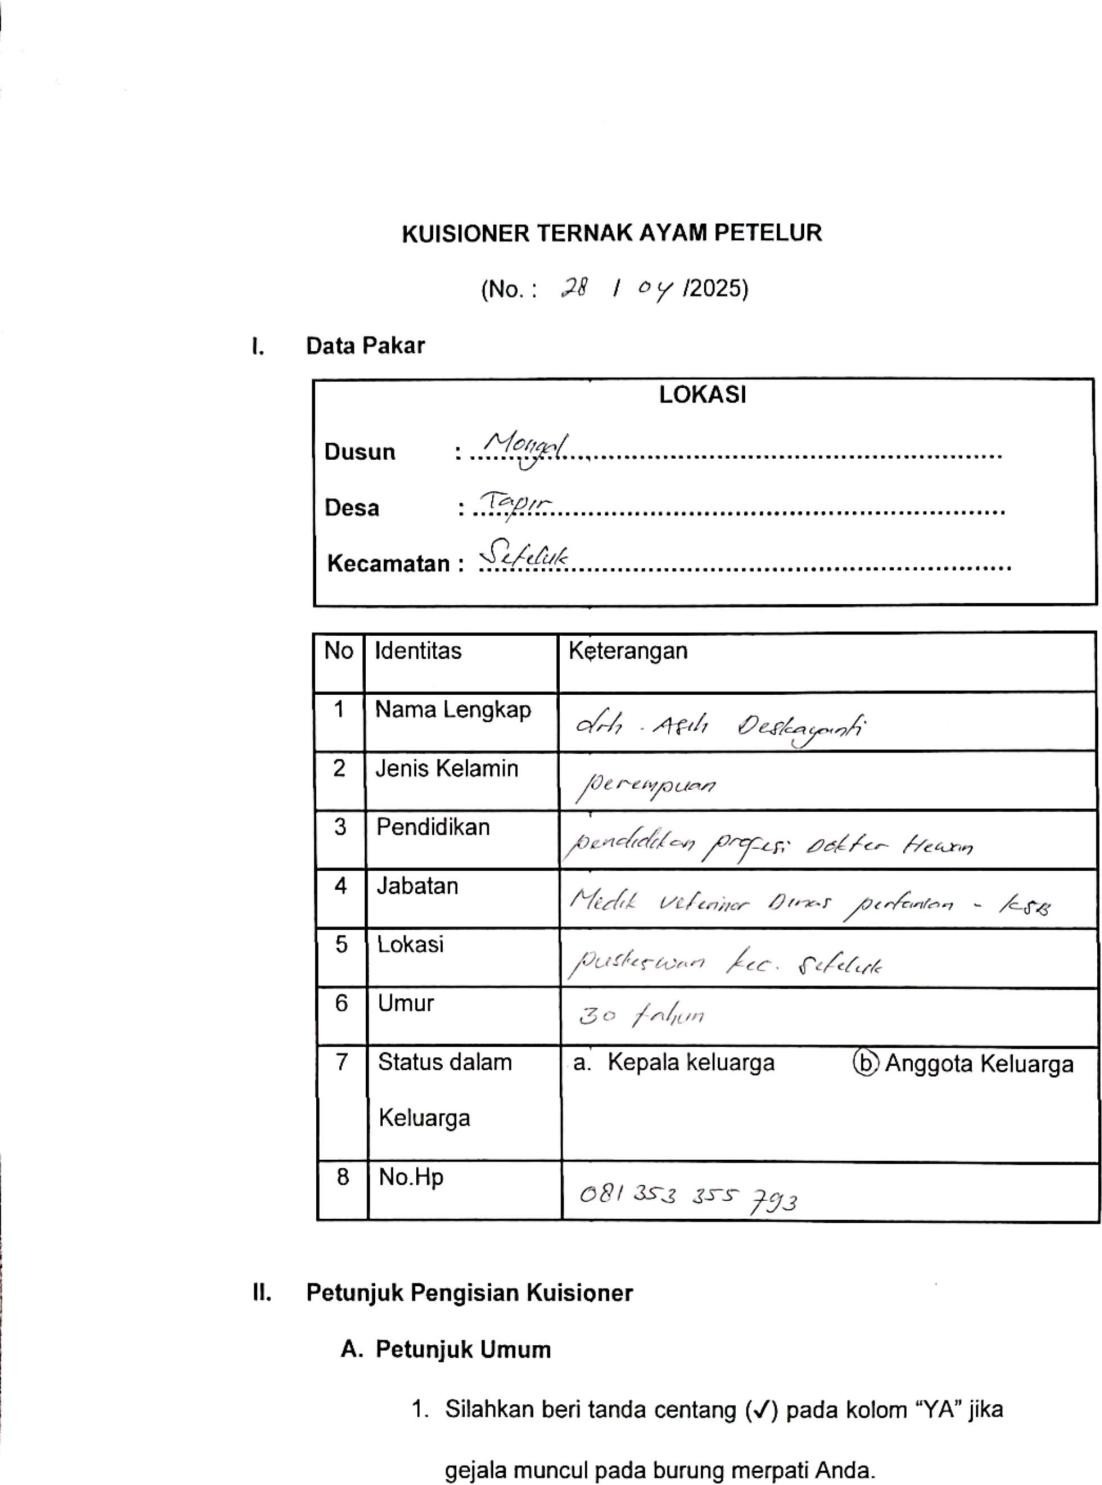 KUISIONER TERNAK AYAM PETELUR
(No. : 28 / 04 /2025)
I. Data Pakar
LOKASI
Dusun : Mongal
Desa : Tapir
Kecamatan : Seteluk
No Identitas Keterangan
1 Nama Lengkap drh. Asih Deskayanti
2 Jenis Kelamin perempuan
3 Pendidikan pendidikan profesi Dokter Hewan
4 Jabatan Medik veteriner Dinas pertanian - KSB
5 Lokasi puskeswan kec. Seteluk
6 Umur 30 tahun
7 Status dalam a. Kepala keluarga b) Anggota Keluarga
Keluarga
8 No.Hp 081 353 355 793
II. Petunjuk Pengisian Kuisioner
A. Petunjuk Umum
1. Silahkan beri tanda centang (✓) pada kolom “YA” jika
gejala muncul pada burung merpati Anda.